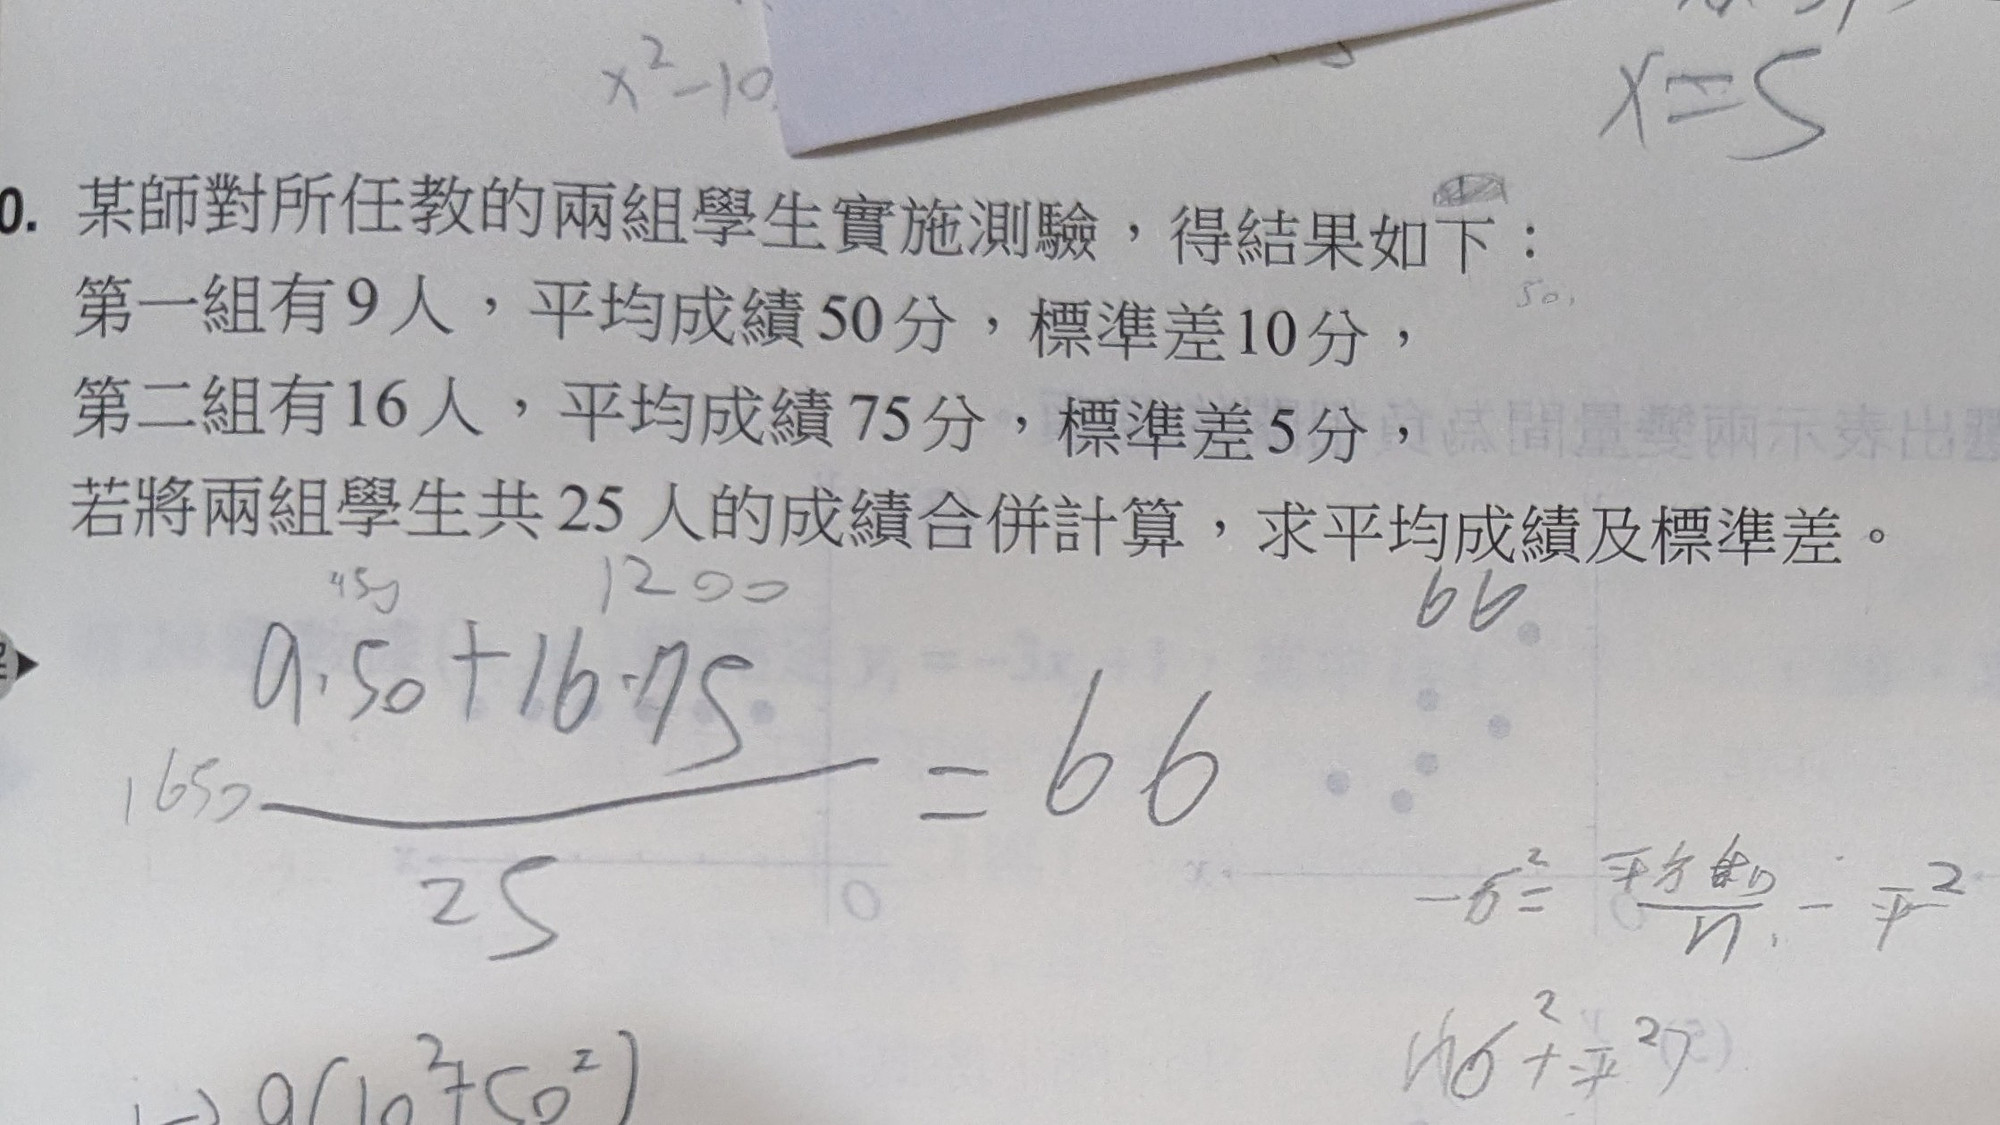 x²-10
x=5
0. 某師對所任教的兩組學生實施測驗，得結果如下：
50.
第一組有9人，平均成績50分，標準差10分，
第二組有16人，平均成績75分，標準差5分，
若將兩組學生共25人的成績合併計算，求平均成績及標準差。
450 1200 66
9.50+16.75
1650 = 66
25
-σ²= 平方和/n - 平²
n(σ²+平²)
9(10²+50²)